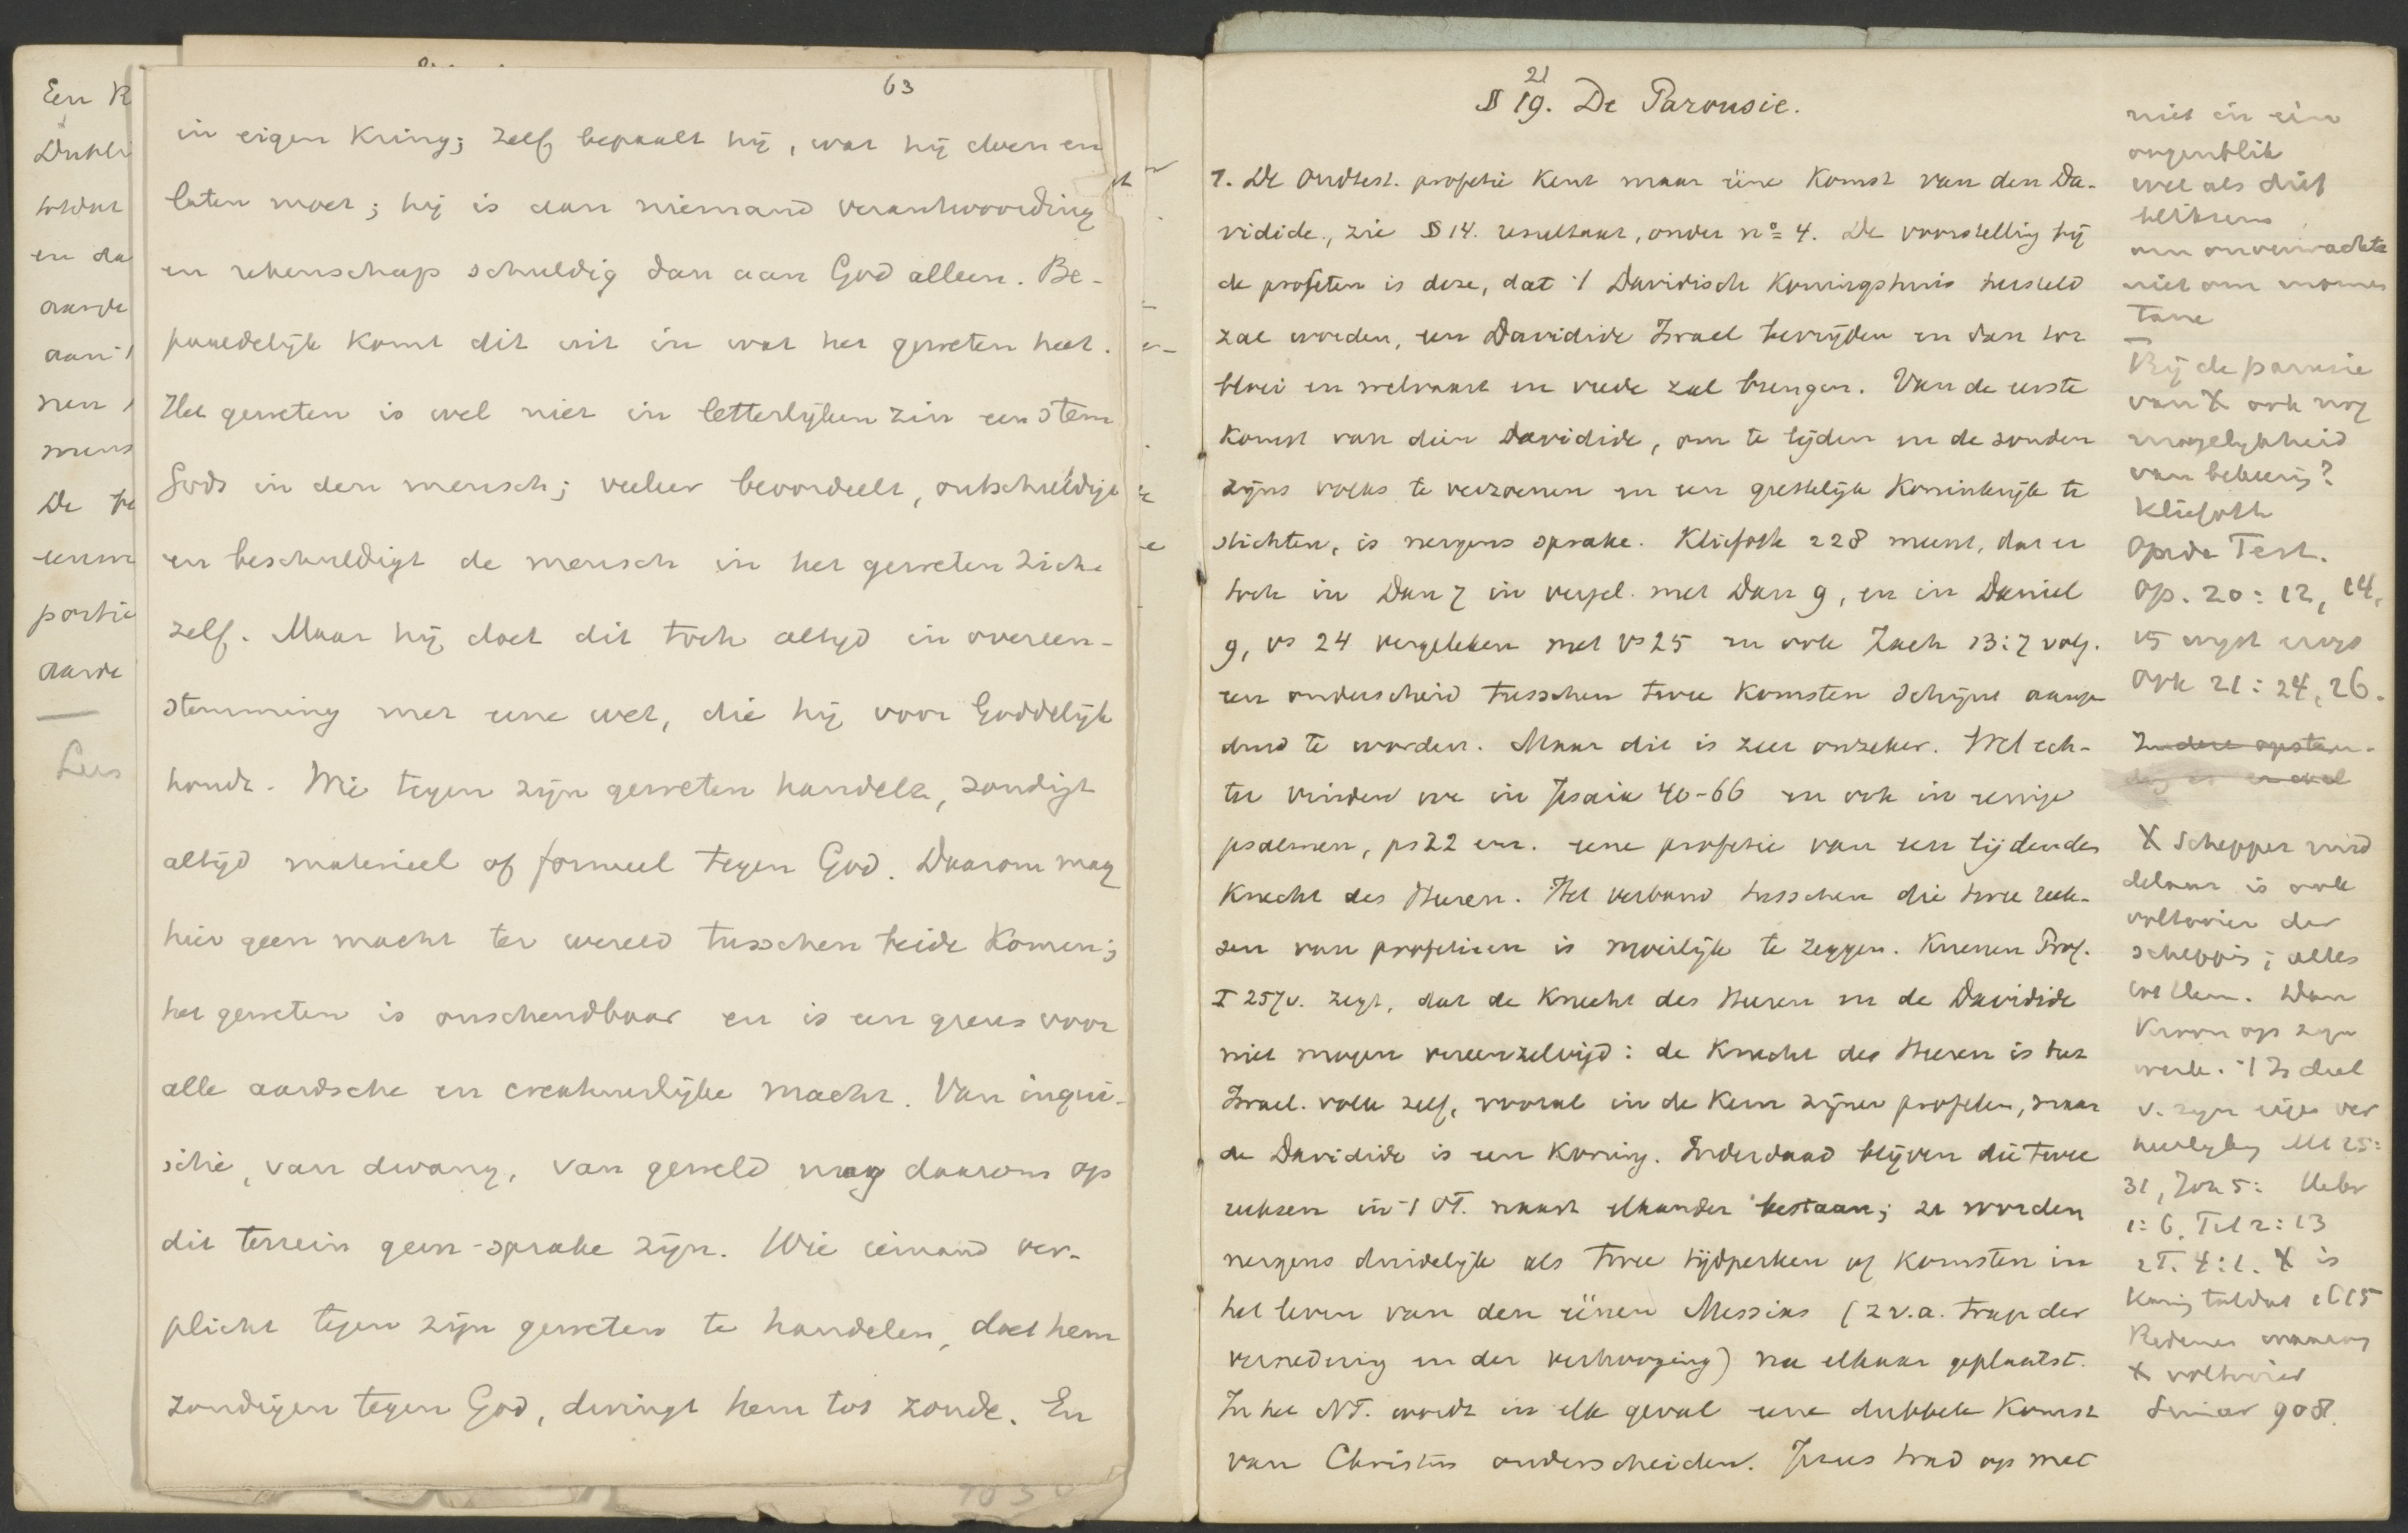 63
in eigen Kring; zelf bepaalt hij, wat hij doen en
laten moet; hij is aan niemand verantwoording
en rekenschap schuldig dan aan God alleen. Be-
paaldelijk komt dit uit in wat het geweten heet.
Het geweten is wel niet in letterlijken zin een stem
Gods in den mensch; veeleer beoordeelt, ontschuldigt
en beschuldigt de mensch in het geweten zich
zelf. Maar hij doet dit toch altijd in overeen-
stemming met eene wet, die hij voor Goddelijk
houdt. Wie tegen zijn geweten handelt, zondigt
altijd materieel of formeel tegen God. Daarom mag
hier geen macht ter wereld tusschen beide Komen;
het geweten is onschendbaar en is een grens voor
alle aardsche en creatuurlijke macht. Van inqui-
sitie, van dwang, van geweld mag daarom op
dit terrein geen sprake zijn. Wie iemand ver-
plicht tegen zijn geweten te handelen, doet hem
zondigen tegen God, dwingt hem tot zonde. En
Een K
Dubbe
totdat
en da
aarde
aan 't
nen
mens
De
portie
aarde
Lees
21
§ 19. De Parousie.
1. De Oudtest. profetie Kent maar ééne Komst van den Da-
vidide, zie § 14. resultaat, onder no 4. De voorstelling bij
de profeten is deze, dat 't Davidisch Koningshuis hersteld
zal worden, een Davidide Israel bevrijden en dan tot
bloei en welvaart en vrede zal brengen. Van de eerste
Komst van dien Davidide, om te lijden en de zonden
zijns volks te verzoenen en een geestelijk Koninkrijk te
stichten, is nergens sprake. Kliefoth 228 meent, dat er
toch in Dan 7 in vergel. met Dan 9, en in Daniel
9, vs 24 vergeleken met vs 25 en ook Zach 13:7 volg.
een onderscheid tusschen twee Komsten schijnt aange
duid te worden. Maar dit is zeer onzeker. Wel ech-
ter vinden we in Jesaia 40-66 en ook in eenige
psalmen, ps 22 enz. eene profetie van een lijdenden
Knecht des Heeren. Het verband tusschen die twee reek-
sen van profetieen is moeilijk te zeggen. Kuenen Prof.
I 257v. zegt, dat de Knecht des Heeren en de Davidide
niet mogen vereenzelvigd: de Knecht des Heeren is het
Israel. volk zelf, vooral in de Kern zijner profeten, maar
de Davidide is een Koning. Inderdaad blijven die twee
reeksen in 't OT. naast elkander bestaan; ze worden
nergens duidelijk als twee tijdperken of Komsten in
het leven van den éénen Messias (z.v.a. trap der
vernedering en der verhooging) na elkaar geplaatst.
In het NT. wordt in elk geval eene dubbele Komst
van Christus onderscheiden. Jezus trad op met
niet in een
oogenblik
wel als dief
bliksem
om onverwachte
niet om momen
tane
Bij de parousie
van X ook nog
mogelijkheid
van bekeering?
Kliefoth
Op. 20:12, 14,
15
Ook 21:24, 26.
X Schepper midd
delaar is ook
voltooier der
schepping; alles
tot Hem. Dan
Kroon op zijn
werk. 't Is deel
v. zijn eigen ver
heerlijking Mt 25:
31, Joh 5: Hebr
1:6. Tit 2:13
2T. 4:1. X is
Koning totdat 1C15
X voltooier
908.